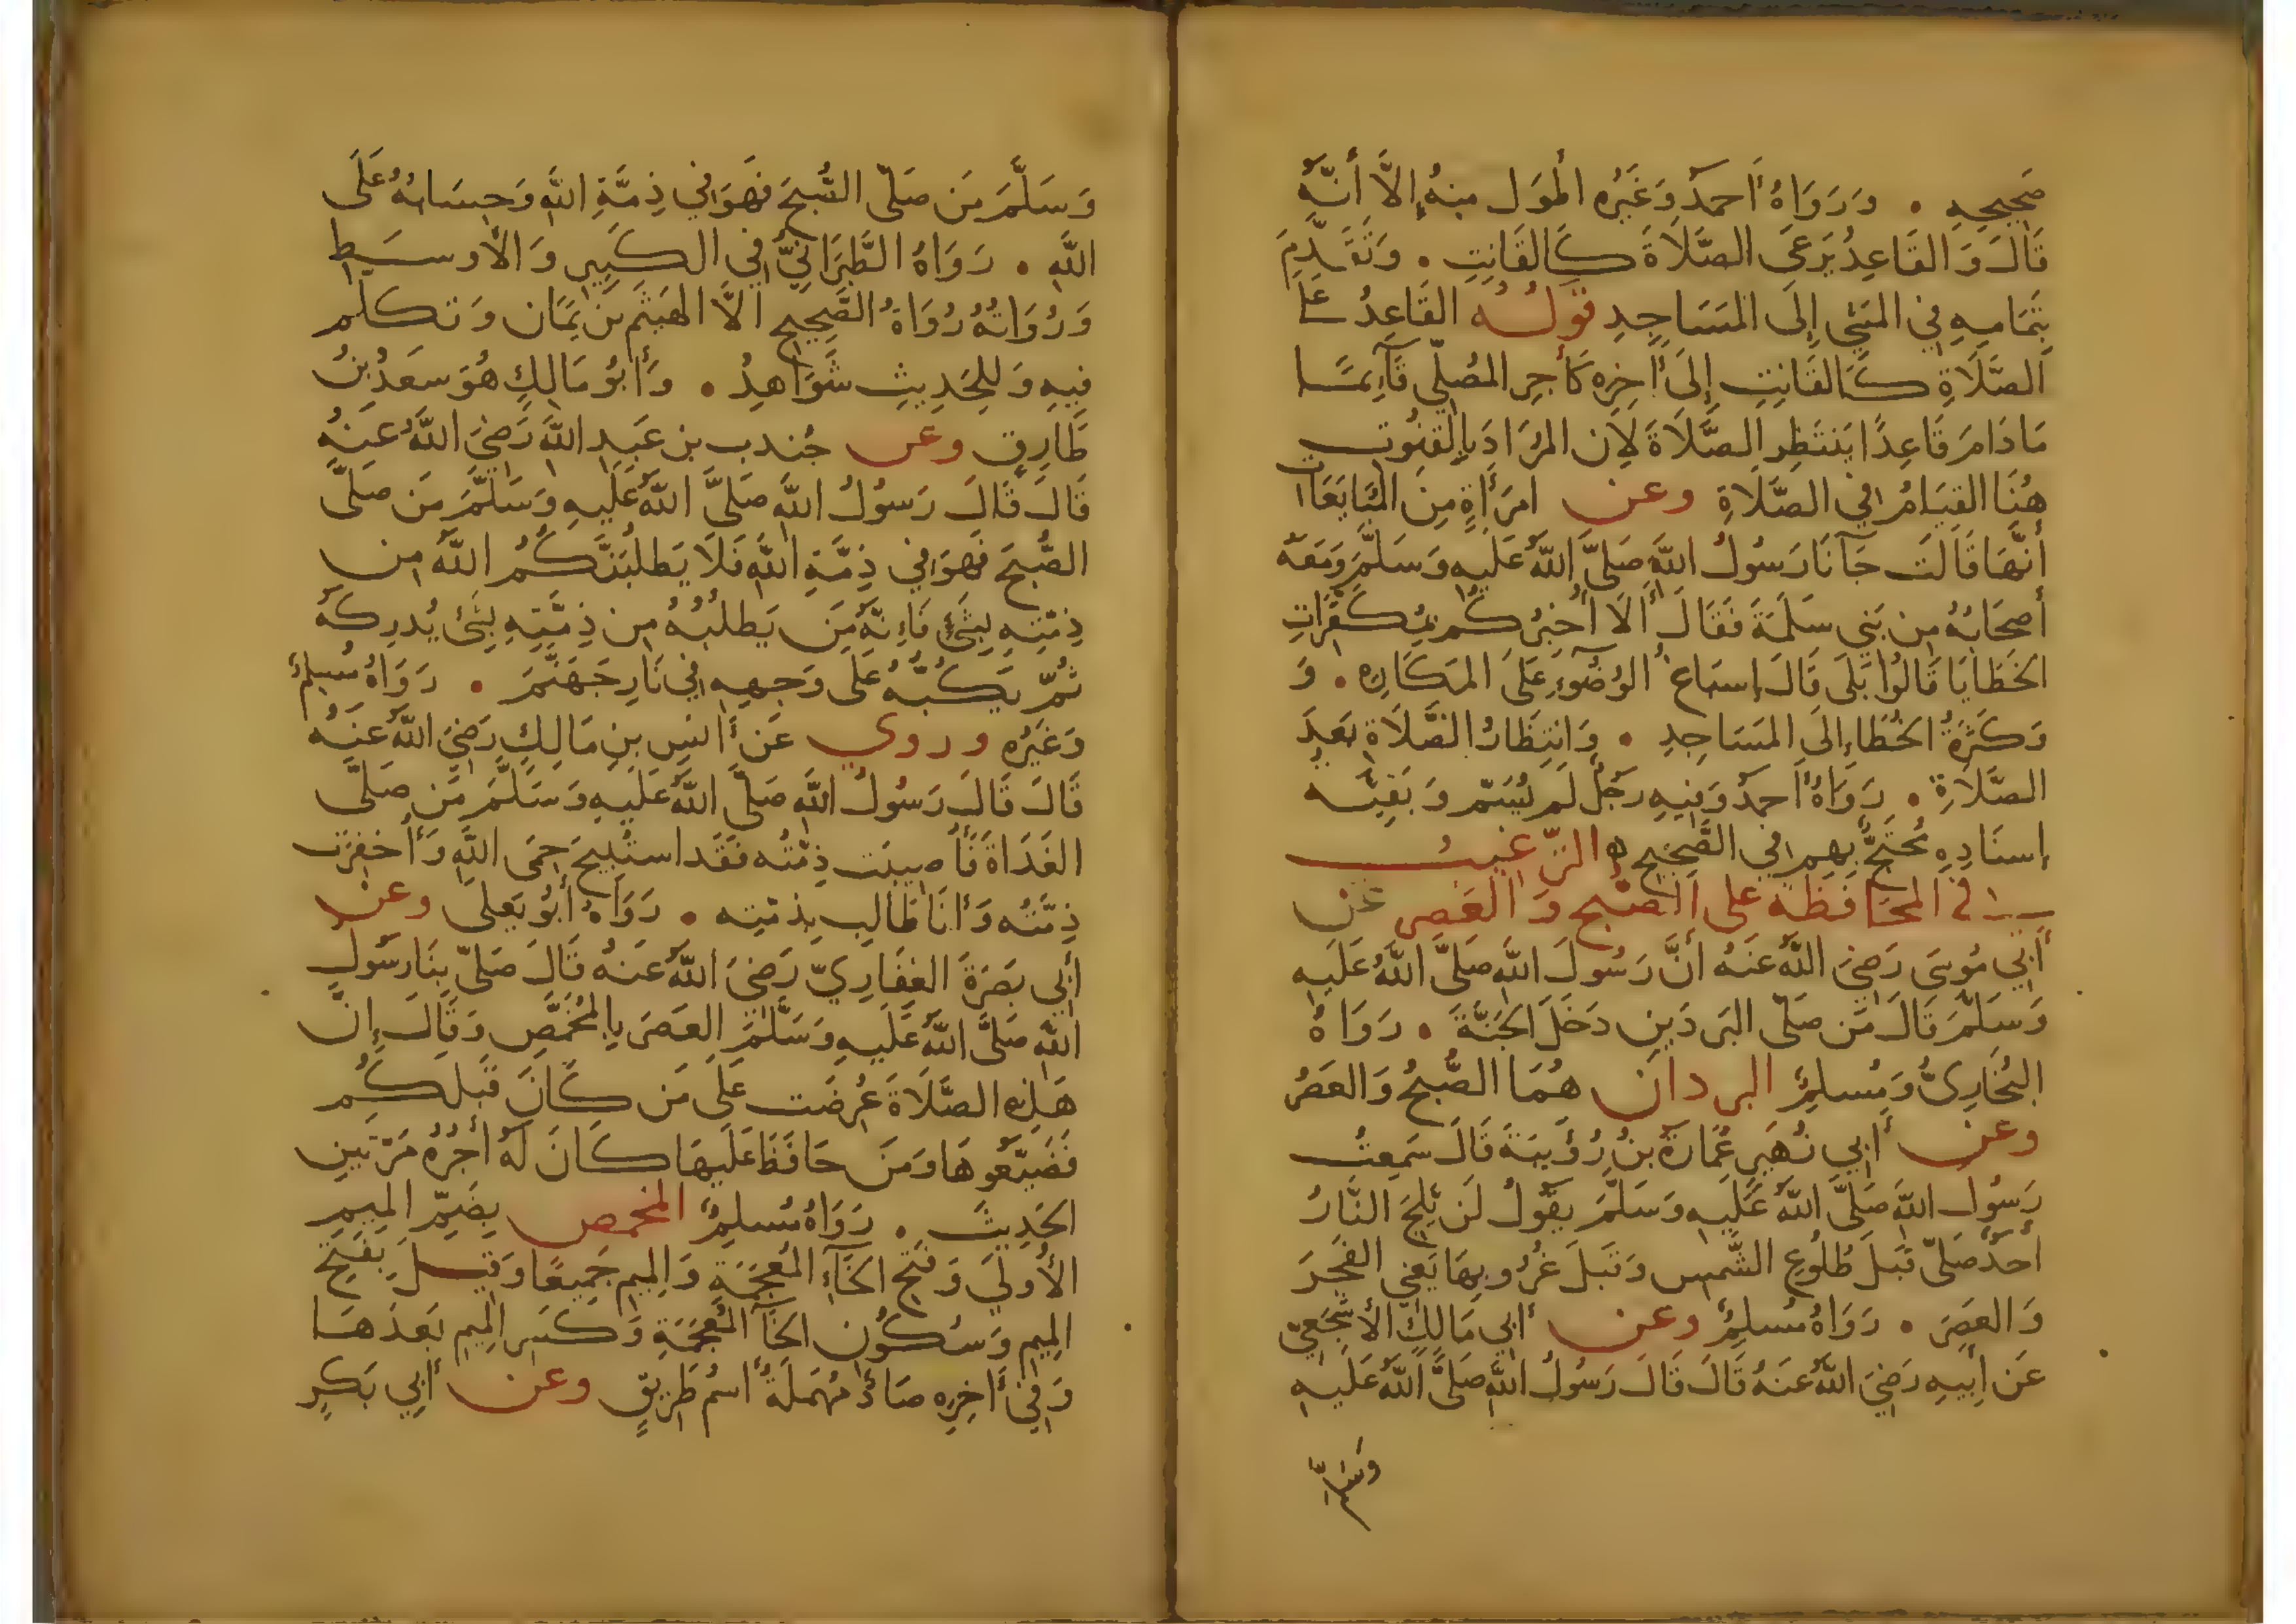 صَحِيحِهِ . وَرَوَاهُ أَحمَدُ وَغَيرُه أَطوَل مِنهُ إِلاَّ أَنَّهُ
قَالَ وَالقَاعِدُ يَرعَى الصَّلَاةَ كَالقَانِتِ . وَتَقَدَّمَ
بِتَمَامِهِ فِي المَشي إِلَى المَسَاجِدِ قَولُهُ القَاعِدُ عَلَى
الصَّلَاةِ كَالقَانِتِ إِلَى أَخِرِه كَأَجرِ المُصَلِّي قَآئِمًا
مَادَامَ قَاعِدًا يَنتَظِر الصَّلَاةَ لِأن المُرَادَ بِالقُنُوتِ
هُنَا القِيَامُ فِي الصَّلَاةِ وعن امرَأَةٍ مِنَ المُبَايَعَات
أَنَّهَا قَالَت جَآنَا رَسُولُ اللَّهِ صَلَّى اللَّهُ عَلَيهِ وَسَلَّمَ وَمَعَهُ
أَصحَابُهُ مِن بَنِي سَلَمَةَ فَقَالَ أَلَا أُخبِرُكُم بِمُكَفِّرَاتِ
الخَطَايَا قَالُوا بَلَى قَالَ إِسبَاغُ الوُضُوءِ عَلَى المَكَارِه . وَ
وَكَثرَةُ الخُطَاءِ إِلَى المَسَاجِدِ . وَانتِظَارُ الصَّلَاةِ بَعدَ
الصَّلَاةِ . رَوَاهُ أَحمَدُ وَفِيهِ رَجُلٌ لَم يُسَمَّ وَبَقِيَّه
إِسنَادِهِ مُحتَجٌّ بِهِم فِي الصَّحِيحِ ه الترَّغيبُ
في المحَافَظَة على الصُّبح وَالعَصرِ عَن
أَبِي مُوسَى رَضِيَ اللَّهُ عَنهُ أَنَّ رَسُولَ اللَّهِ صَلَّى اللَّهُ عَلَيهِ
وَسَلَّمَ قَالَ مَن صَلَّى البَردَينِ دَخَلَ الجَنَّةَ . رَوَاهُ
البُخَارِيُّ وَمُسلِمٌ البردان هُمَا الصُّبحُ وَالعَصرُ
وعن أَبِي زُهَيرٍ عُمَارَةَ بنِ رُؤَيبَةَ قَالَ سَمِعتُ
رَسُولَ اللَّهِ صَلَّى اللَّهُ عَلَيهِ وَسَلَّمَ يَقُولُ لَن يَلِجَ النَّارَ
أَحَدٌ صَلَّى قَبلَ طُلُوعِ الشَّمسِ وَقَبلَ غُرُوبِهَا يَعنِي الفَجرَ
وَالعَصرَ . رَوَاهُ مُسلِمٌ وعن أَبِي مَالِكٍ الأَشجَعِيِّ
عَن أَبِيهِ رَضِيَ اللَّهُ عَنهُ قَالَ قَالَ رَسُولُ اللَّهِ صَلَّى اللَّهُ عَلَيهِ
وَسَلَّمَ
وَسَلَّمَ مَن صَلَّى الصُّبحَ فَهوَ فِي ذِمَّةِ اللَّهِ وَحِسَابُهُ عَلَى
اللَّهِ . رَوَاهُ الطَّبَرَانِيُّ فِي الكَبِيرِ وَالأَوسَطِ
وَرُوَاتُهُ رُوَاةُ الصَّحِيحِ الاَّ الهَيثَم بن يَمَان وَتكلم
فِيهِ وَلِلحَدِيثِ شَوَاهِدُ . وَأَبُو مَالِكٍ هُوَ سَعدُ بنُ
طَارِقٍ وعن جُندب بن عَبدِ اللَّهِ رَضِيَ اللَّهُ عَنهُ
قَالَ قَالَ رَسُولُ اللَّهِ صَلَّى اللَّهُ عَلَيهِ وَسَلَّمَ مَن صَلَّى
الصُّبحَ فَهوَ فِي ذِمَّةِ اللَّهِ فَلَا يَطلُبَنَّكُمُ اللَّهُ مِن
ذِمَّتِهِ بِشَيءٍ فَإِنَّهُ مَن يَطلُبُهُ مِن ذِمَّتِهِ بِشَيءٍ يُدرِكهُ
ثُمَّ يَكُبُّهُ عَلَى وَجهِهِ فِي نَارِ جَهَنَّمَ . رَوَاهُ مُسلِمٌ
وَغَيرُه وروي عَن أَنَسِ بنِ مَالِكٍ رَضِيَ اللَّهُ عَنهُ
قَالَ قَالَ رَسُولُ اللَّهِ صَلَّى اللَّهُ عَلَيهِ وَسَلَّمَ مَن صَلَّى
الغَدَاةَ فَأُصِيبَت ذِمَّتُه فَقَد استُبِيحَ حِمَى اللَّهِ وَأُخفِرَت
ذِمَّتُه وَأَنَا طَالِب بِذمَّتِه . رَوَاهُ أَبُو يَعلَى وعن
أَبِي بَصرَةَ الغِفَارِيِّ رَضِيَ اللَّهُ عَنهُ قَالَ صَلَّى بِنَا رَسُولُ
اللَّهِ صَلَّى اللَّهُ عَلَيهِ وَسَلَّمَ العَصرَ بِالمُخَمَّصِ وَقَالَ إِنَّ
هَذِهِ الصَّلَاةَ عُرِضَت عَلَى مَن كَانَ قَبلَكُم
فَضَيَّعُوهَا وَمَن حَافَظَ عَلَيهَا كَانَ لَهُ أَجرُهُ مَرَّتَينِ
الحَدِيثَ . رَوَاهُ مُسلِمٌ المخمص بِضَمِّ المِيمِ
الأُولَى وَفَتحِ الخَآءِ المُعجَمَةِ وَالمِيمِ جَمِيعًا وَقِيلَ بِفَتحِ
المِيمِ وَسُكُونِ الخَآ المُعجَمَةِ وَكَسرِ المِيمِ بَعدَهَا
وَفِي أَخِرِه صَادٌ مُهمَلَةٌ اسمُ طَرِيقٍ وعن أَبِي بَكرٍ